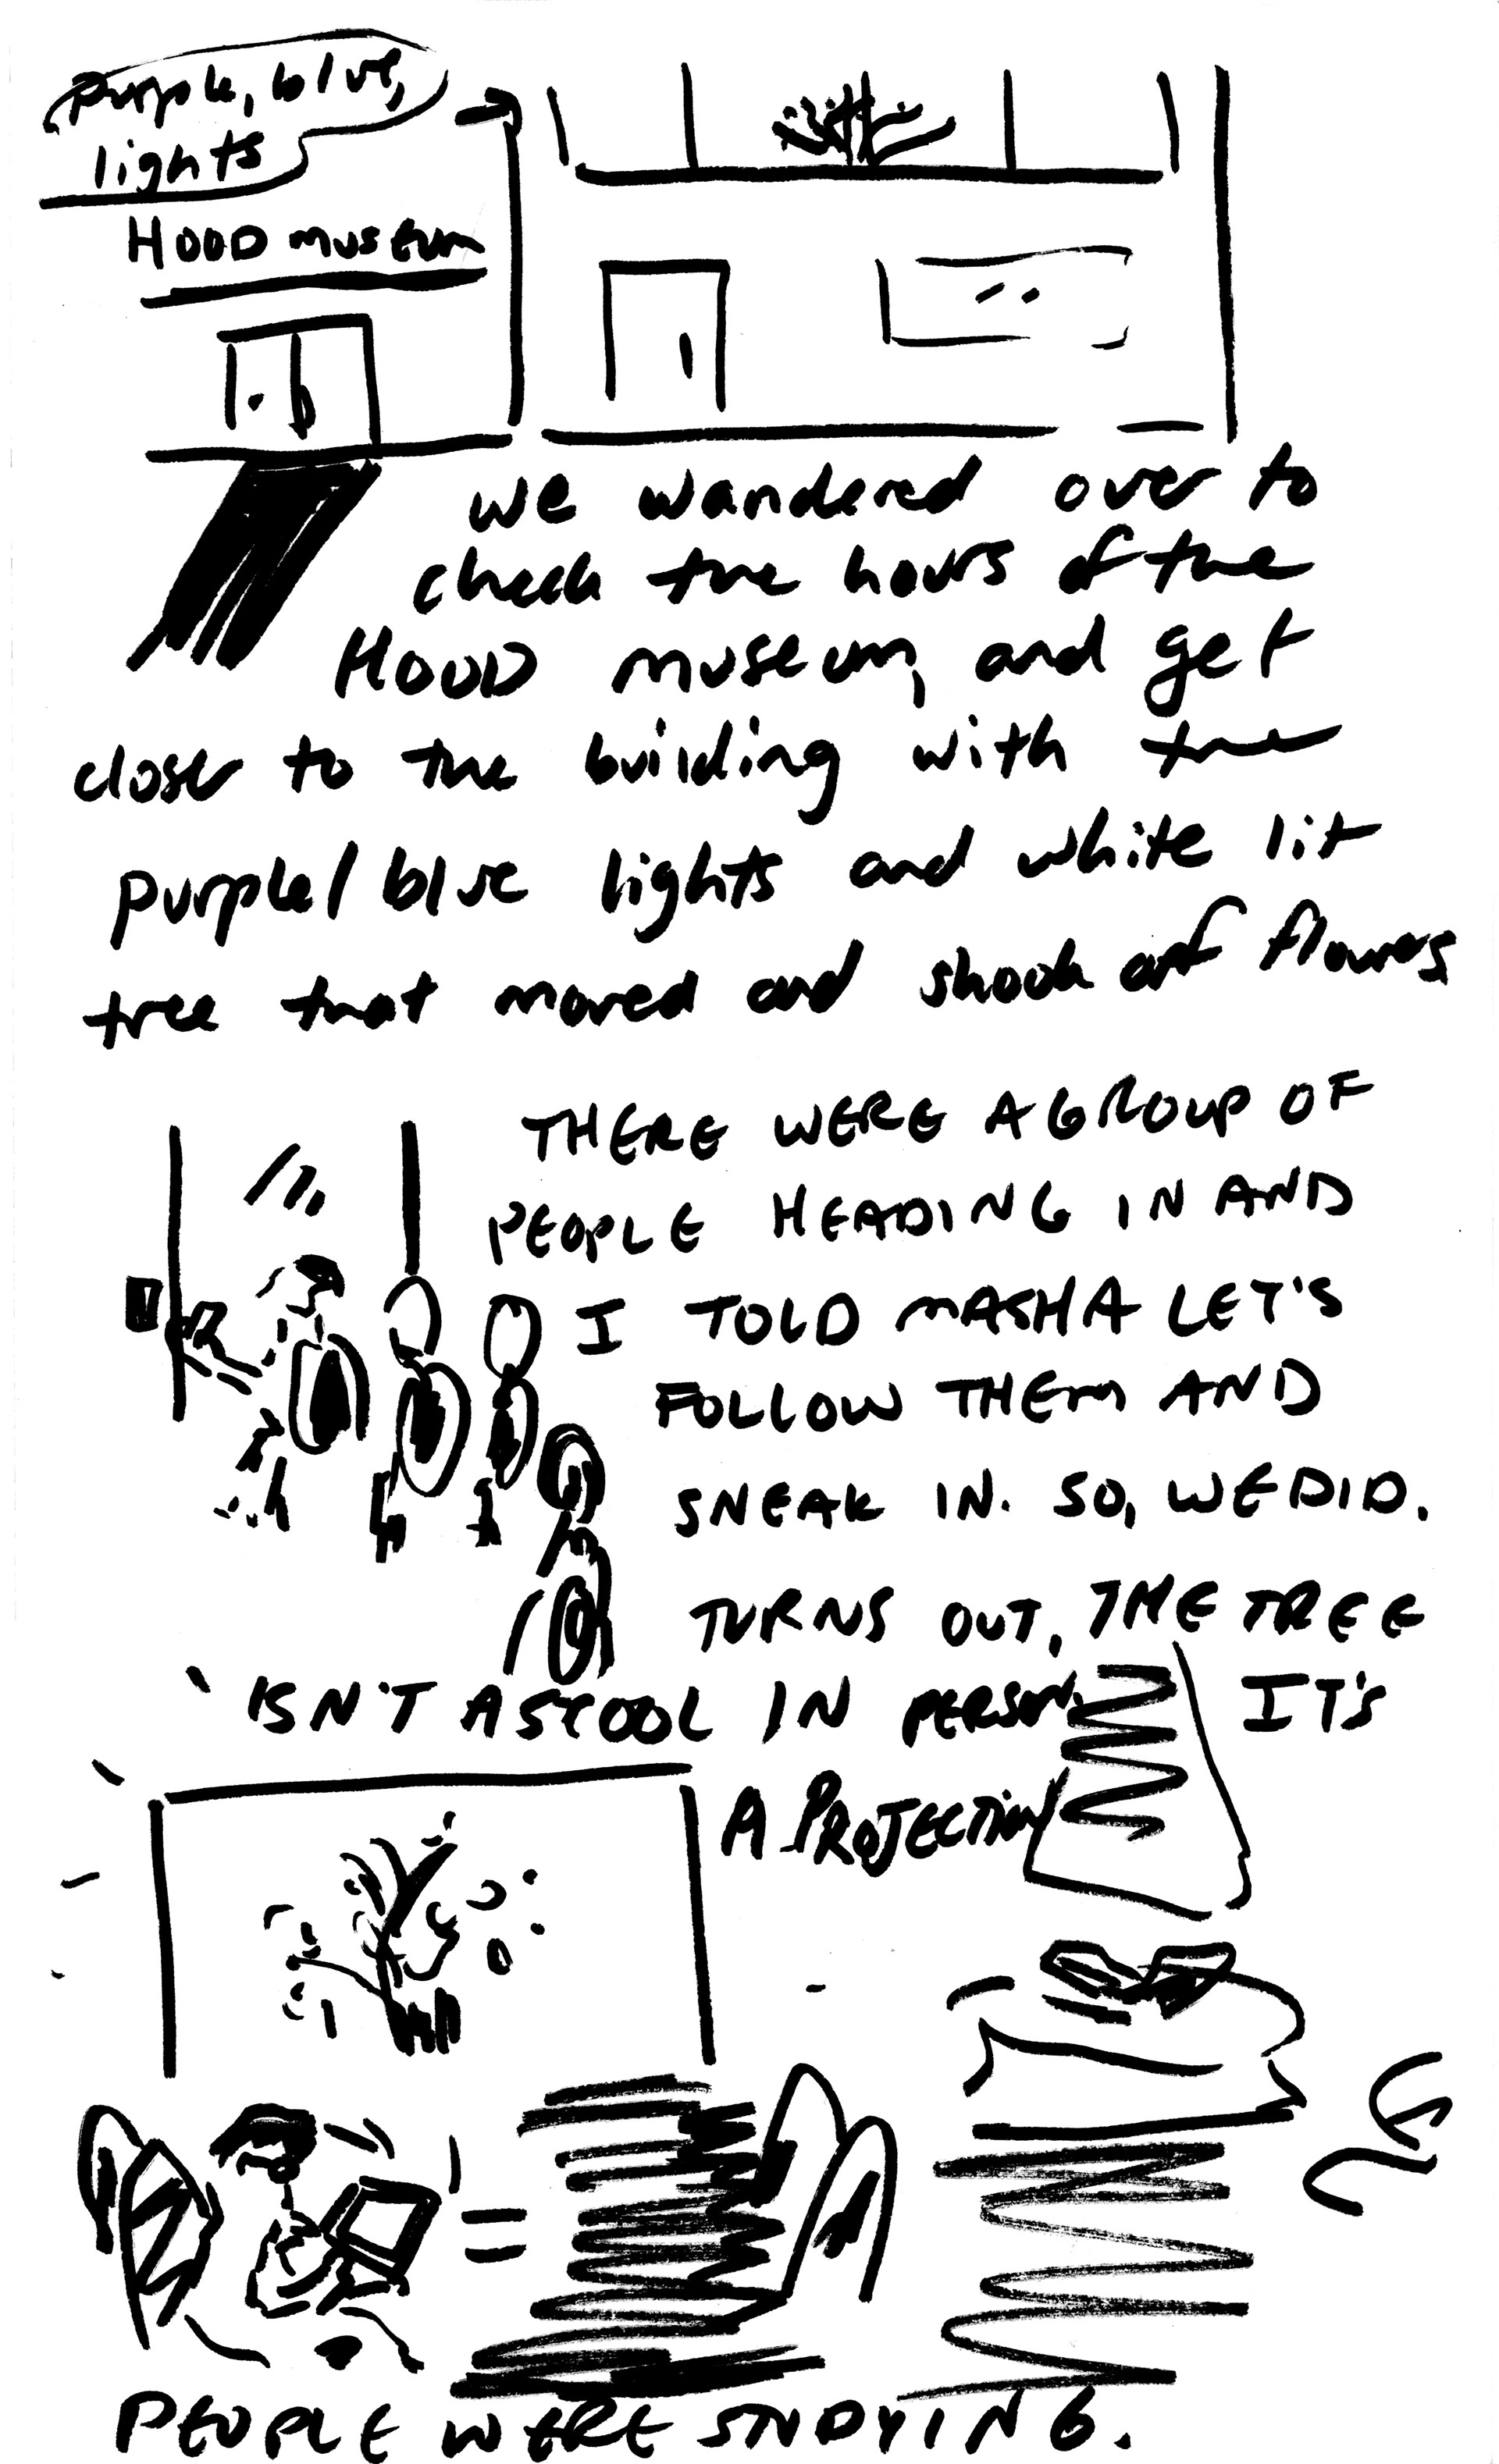 Purple, blue,
lights
HOOD museum
we wandered over to
check the hours of the
HOOD museum, and get
closer to the building with the
purple/blue lights and white lit
tree that moved and shook off flowers
THERE WERE A GROUP OF
PEOPLE HEADING IN AND
I TOLD MASHA LET'S
FOLLOW THEM AND
SNEAK IN. SO, WE DID.
TURNS OUT, THE TREE
ISN'T AS COOL IN PERSON. IT'S
A PROJECTION
PEOPLE WERE STUDYING.